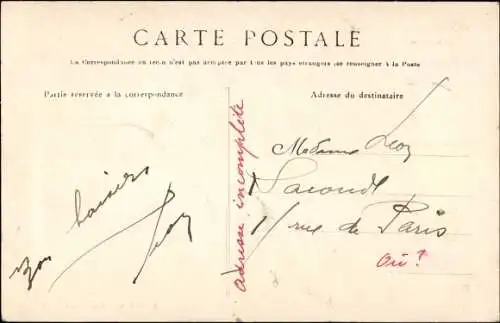 CARTE POSTALE
La Correspondance au recto n'est pas acceptée par tous les pays étrangers (se renseigner à la Poste
Partie réservée à la correspondance
Adresse du destinataire
Bon baisers
Léon
adresse incomplète
Madame Léon
11 rue de Paris
Où?